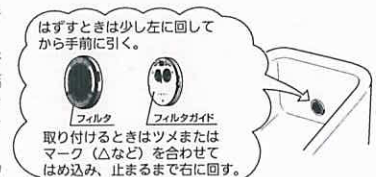 はずすときは少し左に回して
から手前に引く。
フィルタ
フィルタガイド
取り付けるときはツメまたは
マーク（△など）を合わせて
はめ込み、止まるまで右に回す。